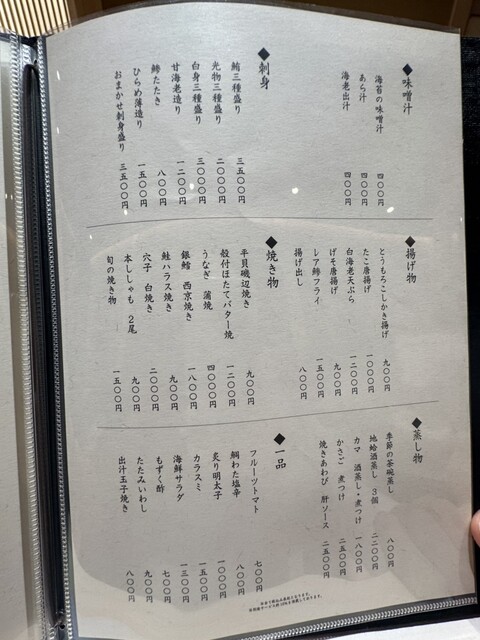 ◆味噌汁
海苔の味噌汁 四〇〇円
あら汁 四〇〇円
海老出汁 四〇〇円
◆刺身
鮪三種盛り 三五〇〇円
光物三種盛り 二〇〇〇円
白身三種盛り 三〇〇〇円
甘海老造り 一二〇〇円
鯵たたき 八〇〇円
ひらめ薄造り 一五〇〇円
おまかせ刺身盛り 三五〇〇円
◆揚げ物
とうもろこしかき揚げ 九〇〇円
たこ唐揚げ 一〇〇〇円
白海老天ぷら 一二〇〇円
げそ唐揚げ 九〇〇円
レア鯵フライ 一五〇〇円
揚げ出し 八〇〇円
◆焼き物
平貝磯辺焼き 九〇〇円
殻付ほたてバター焼 一二〇〇円
うなぎ 蒲焼 四〇〇〇円
銀鱈 西京焼き 一八〇〇円
鮭ハラス焼き 九〇〇円
穴子 白焼き 二〇〇〇円
本ししゃも 2尾 九〇〇円
旬の焼き物 一五〇〇円
◆蒸し物
季節の茶碗蒸し 八〇〇円
地蛤酒蒸し 3個 二二〇〇円
カマ 酒蒸し・煮つけ 一八〇〇円
かさご 煮つけ 二五〇〇円
焼きあわび 肝ソース 二五〇〇円
◆一品
フルーツトマト 七〇〇円
鯛わた塩辛 八〇〇円
炙り明太子 一〇〇〇円
カラスミ 一五〇〇円
海鮮サラダ 一三〇〇円
もずく酢 七〇〇円
たたみいわし 九〇〇円
出汁玉子焼き 八〇〇円